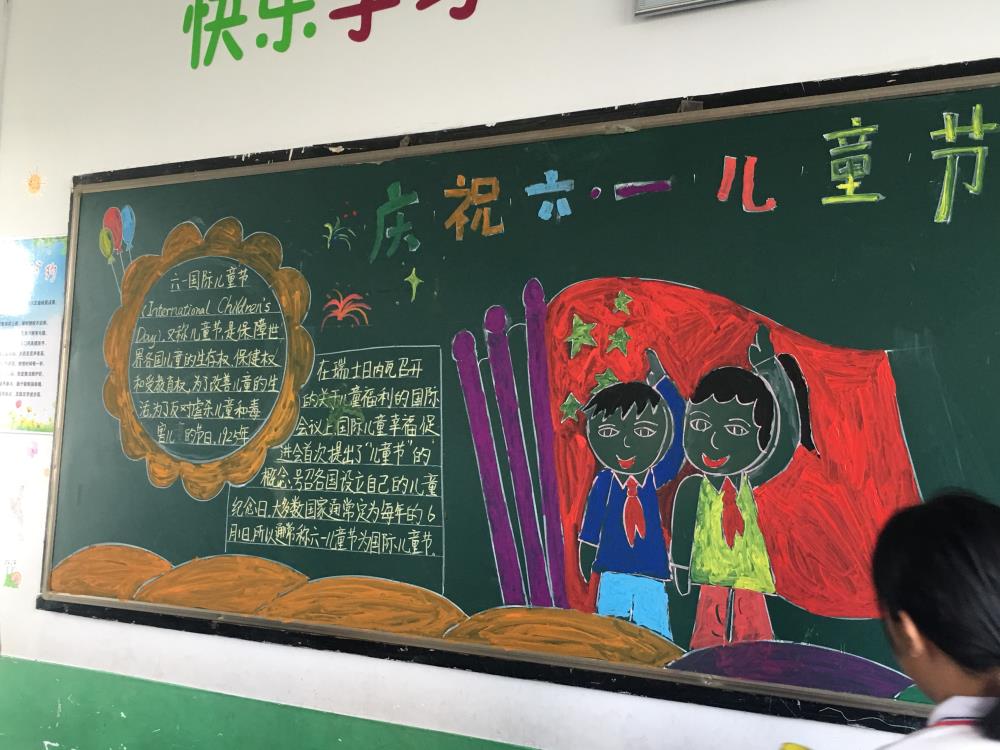 快乐学习
庆祝六·一儿童节
六一国际儿童节
(International Children's
Day),又称儿童节是保障世
界各国儿童的生存权、保健权
和受教育权,为了改善儿童的生
活,为了反对虐杀儿童和毒
害儿童的节日,1925年
在瑞士日内瓦召开
的关于儿童福利的国际
会议上,国际儿童幸福促
进会首次提出了"儿童节"的
概念,号召各国设立自己的儿童
纪念日.大多数国家通常定为每年的6
月1日.所以通常称六一儿童节为国际儿童节.